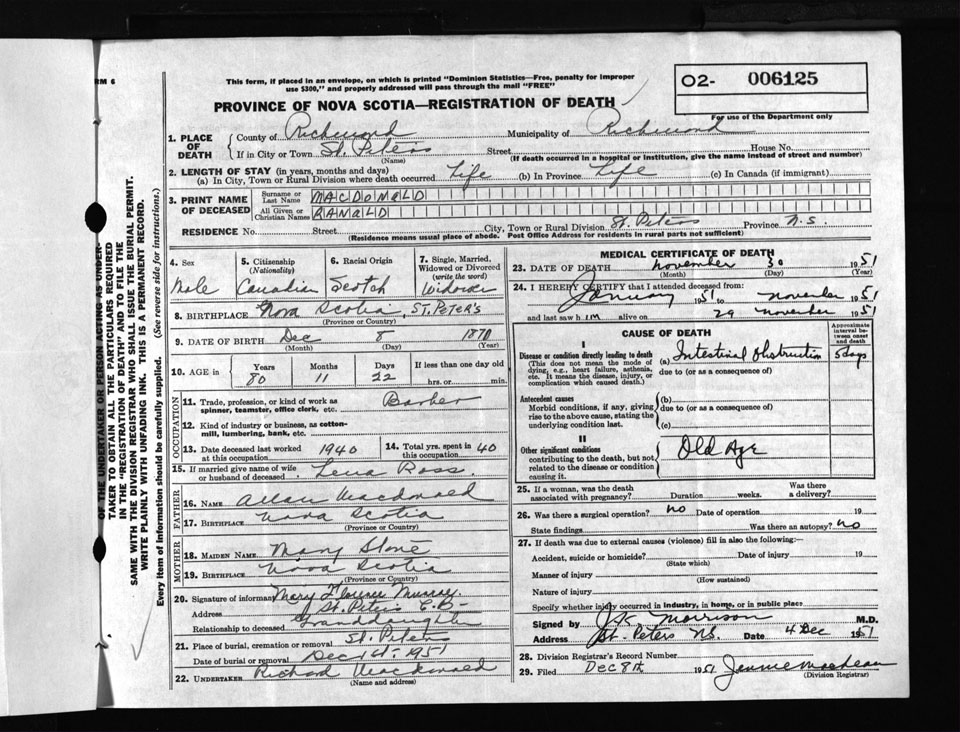 RM 6
This form, if placed in an envelope, on which is printed "Dominion Statistics—Free, penalty for improper
use $300," and properly addressed will pass through the mail "FREE"
O2- 006125
For use of the Department only
PROVINCE OF NOVA SCOTIA—REGISTRATION OF DEATH
1. PLACE OF DEATH County of Richmond Municipality of Richmond
If in City or Town St. Peters Street House No.
(Name) (If death occurred in a hospital or institution, give the name instead of street and number)
2. LENGTH OF STAY (in years, months and days)
(a) In City, Town or Rural Division where death occurred Life (b) In Province Life (c) In Canada (if immigrant)
3. PRINT NAME OF DECEASED Surname or Last Name MACDONALD
All Given or Christian Names RANALD
RESIDENCE No. Street City, Town or Rural Division St. Peters Province N.S.
(Residence means usual place of abode. Post Office Address for residents in rural parts not sufficient)
4. Sex Male
5. Citizenship (Nationality) Canadian
6. Racial Origin Scotch
7. Single, Married, Widowed or Divorced (write the word) Widower
8. BIRTHPLACE Nova Scotia, ST. PETER'S
(Province or Country)
9. DATE OF BIRTH Dec 8 1870
(Month) (Day) (Year)
10. AGE in Years 80 Months 11 Days 22 If less than one day old hrs. or min.
OCCUPATION
11. Trade, profession, or kind of work as spinner, teamster, office clerk, etc. Barber
12. Kind of industry or business, as cotton-mill, lumbering, bank, etc.
13. Date deceased last worked at this occupation 1940
14. Total yrs. spent in this occupation 40
15. If married give name of wife or husband of deceased Lena Ross.
FATHER
16. NAME Allan Macdonald
17. BIRTHPLACE Nova Scotia
(Province or Country)
MOTHER
18. MAIDEN NAME Mary Stone
19. BIRTHPLACE Nova Scotia
(Province or Country)
20. Signature of informant Mary Florence Murray.
Address St. Peter's C.B-
Relationship to deceased Granddaughter
21. Place of burial, cremation or removal St. Peters
Date of burial or removal Dec 1st. 1951
22. UNDERTAKER Richard Macdonald
(Name and address)
MEDICAL CERTIFICATE OF DEATH
23. DATE OF DEATH November 30 1951
(Month) (Day) (Year)
24. I HEREBY CERTIFY that I attended deceased from:
January 1951 to November 1951
and last saw h im alive on 29 november 1951
CAUSE OF DEATH
Approximate interval between onset and death
I
Disease or condition directly leading to death (a) Intestinal Obstruction 5 days
(This does not mean the mode of dying, e.g., heart failure, asthenia, etc. It means the disease, injury, or complication which caused death.)
due to (or as a consequence of)
Antecedent causes (b)
Morbid conditions, if any, giving rise to the above cause, stating the underlying condition last.
due to (or as a consequence of)
(c)
II
Other significant conditions Old Age
contributing to the death, but not related to the disease or condition causing it.
25. If a woman, was the death associated with pregnancy? Duration weeks. Was there a delivery?
26. Was there a surgical operation? no Date of operation 19
State findings Was there an autopsy? no
27. If death was due to external causes (violence) fill in also the following:—
Accident, suicide or homicide? Date of injury 19
(State which)
Manner of injury
(How sustained)
Nature of injury
Specify whether injury occurred in industry, in home, or in public place
Signed by J.K. Morrison M.D.
Address St. Peters NS. Date 4 Dec 1951
28. Division Registrar's Record Number
29. Filed Dec 8th 1951 Jennie MacLean
(Division Registrar)
OF THE UNDERTAKER OR PERSON ACTING AS UNDER-
TAKER TO OBTAIN ALL THE PARTICULARS REQUIRED
IN THE "REGISTRATION OF DEATH" AND TO FILE THE
SAME WITH THE DIVISION REGISTRAR WHO SHALL ISSUE THE BURIAL PERMIT.
WRITE PLAINLY WITH UNFADING INK. THIS IS A PERMANENT RECORD.
Every item of information should be carefully supplied. (See reverse side for instructions.)